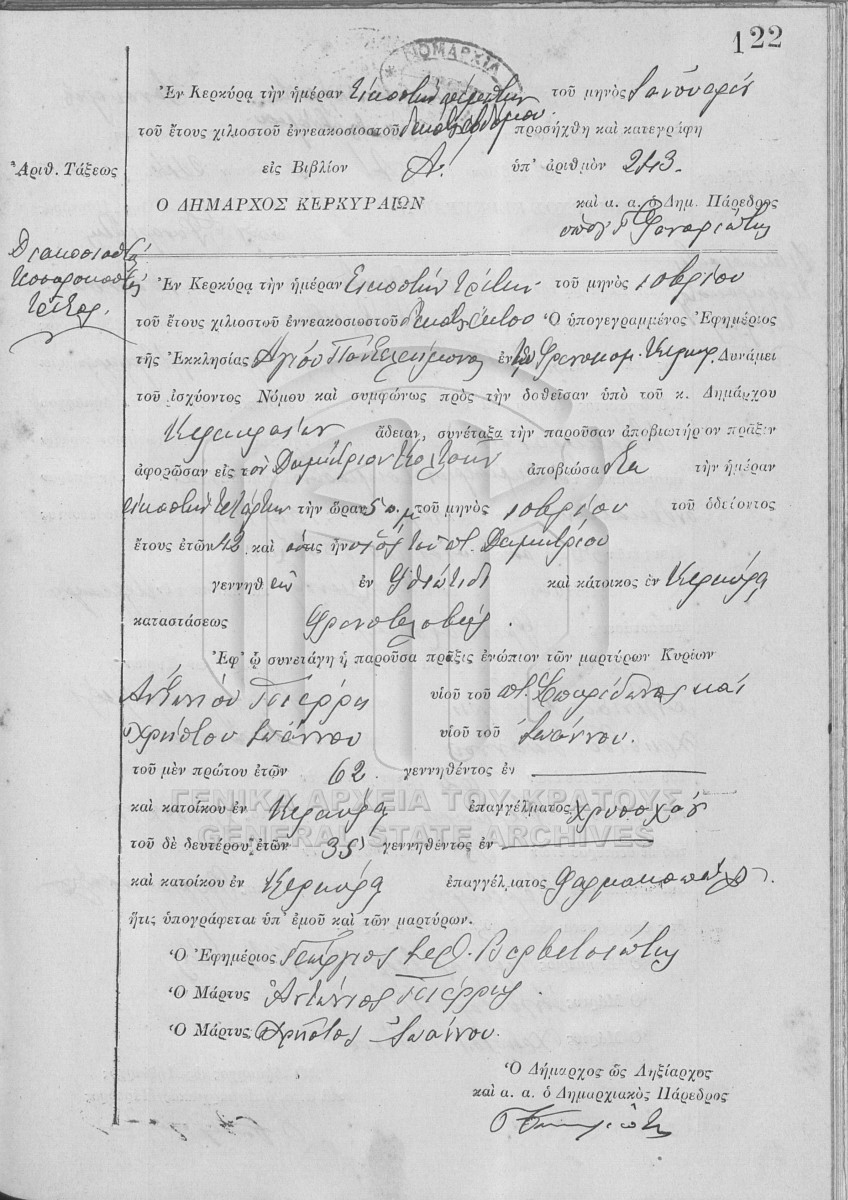 122
ΝΟΜΑΡΧΙΑ
Ἐν Κερκύρᾳ τὴν ἡμέραν τοῦ μηνὸς Ἰανουαρίου
τοῦ ἔτους χιλιοστοῦ ἐννεακοσιοστοῦ δεκάτου ἑβδόμου προσήχθη καὶ κατεγράφη
Ἀριθ. Τάξεως
εἰς Βιβλίον Α. ὑπ' ἀριθμὸν 243.
Ο ΔΗΜΑΡΧΟΣ ΚΕΡΚΥΡΑΙΩΝ
καὶ α. α. ὁ Δημ. Πάρεδρος
Διακοσιοστὸς
τεσσαρακοστὸς
τρίτος.
Ἐν Κερκύρᾳ τὴν ἡμέραν Εικοστὴν τρίτην τοῦ μηνὸς 10βρίου
τοῦ ἔτους χιλιοστοῦ ἐννεακοσιοστοῦ δεκάτου ἕκτου Ὁ ὑπογεγραμμένος Ἐφημέριος
τῆς Ἐκκλησίας Ἁγίου Παντελεήμονος ἐν Δυνάμει
τοῦ ἰσχύοντος Νόμου καὶ συμφώνως πρὸς τὴν δοθεῖσαν ὑπὸ τοῦ κ. Δημάρχου
Κερκυραίων ἄδειαν, συνέταξα τὴν παροῦσαν ἀποβιωτήριον πρᾶξιν
ἀφορῶσαν εἰς τὸν Δημήτριον ἀποβιώσαντα τὴν ἡμέραν
εἰκοστὴν τετάρτην τὴν ὥραν 5 μ. τοῦ μηνὸς 10βρίου τοῦ ὁδεύοντος
ἔτους ἐτῶν 42 καὶ ὅστις ἦν υἱὸς τοῦ π. Δημητρίου
γεννηθεὶς ἐν Φθιώτιδι καὶ κάτοικος ἐν Κερκύρᾳ
καταστάσεως φρενοβλαβής.
Ἐφ' ᾧ συνετάγη ἡ παροῦσα πρᾶξις ἐνώπιον τῶν μαρτύρων Κυρίων
Ἀντωνίου υἱοῦ τοῦ π. Σπυρίδωνος καὶ
Χρήστου Ἰωάννου υἱοῦ τοῦ Ἰωάννου.
τοῦ μὲν πρώτου ἐτῶν 62. γεννηθέντος ἐν
καὶ κατοίκου ἐν Κερκύρᾳ ἐπαγγέλματος χρυσοχόου
ΓΕΝΙΚΑ ΑΡΧΕΙΑ ΤΟΥ ΚΡΑΤΟΥΣ
GENERAL STATE ARCHIVES
τοῦ δὲ δευτέρου ἐτῶν 35 γεννηθέντος ἐν
καὶ κατοίκου ἐν Κερκύρᾳ ἐπαγγέλματος φαρμακοποιοῦ.
ἥτις ὑπογράφεται ὑπ' ἐμοῦ καὶ τῶν μαρτύρων.
Ὁ Ἐφημέριος Γεώργιος
Ὁ Μάρτυς Ἀντώνιος
Ὁ Μάρτυς Χρῆστος Ἰωάννου.
Ὁ Δήμαρχος ὡς Ληξίαρχος
καὶ α. α. ὁ Δημαρχιακὸς Πάρεδρος